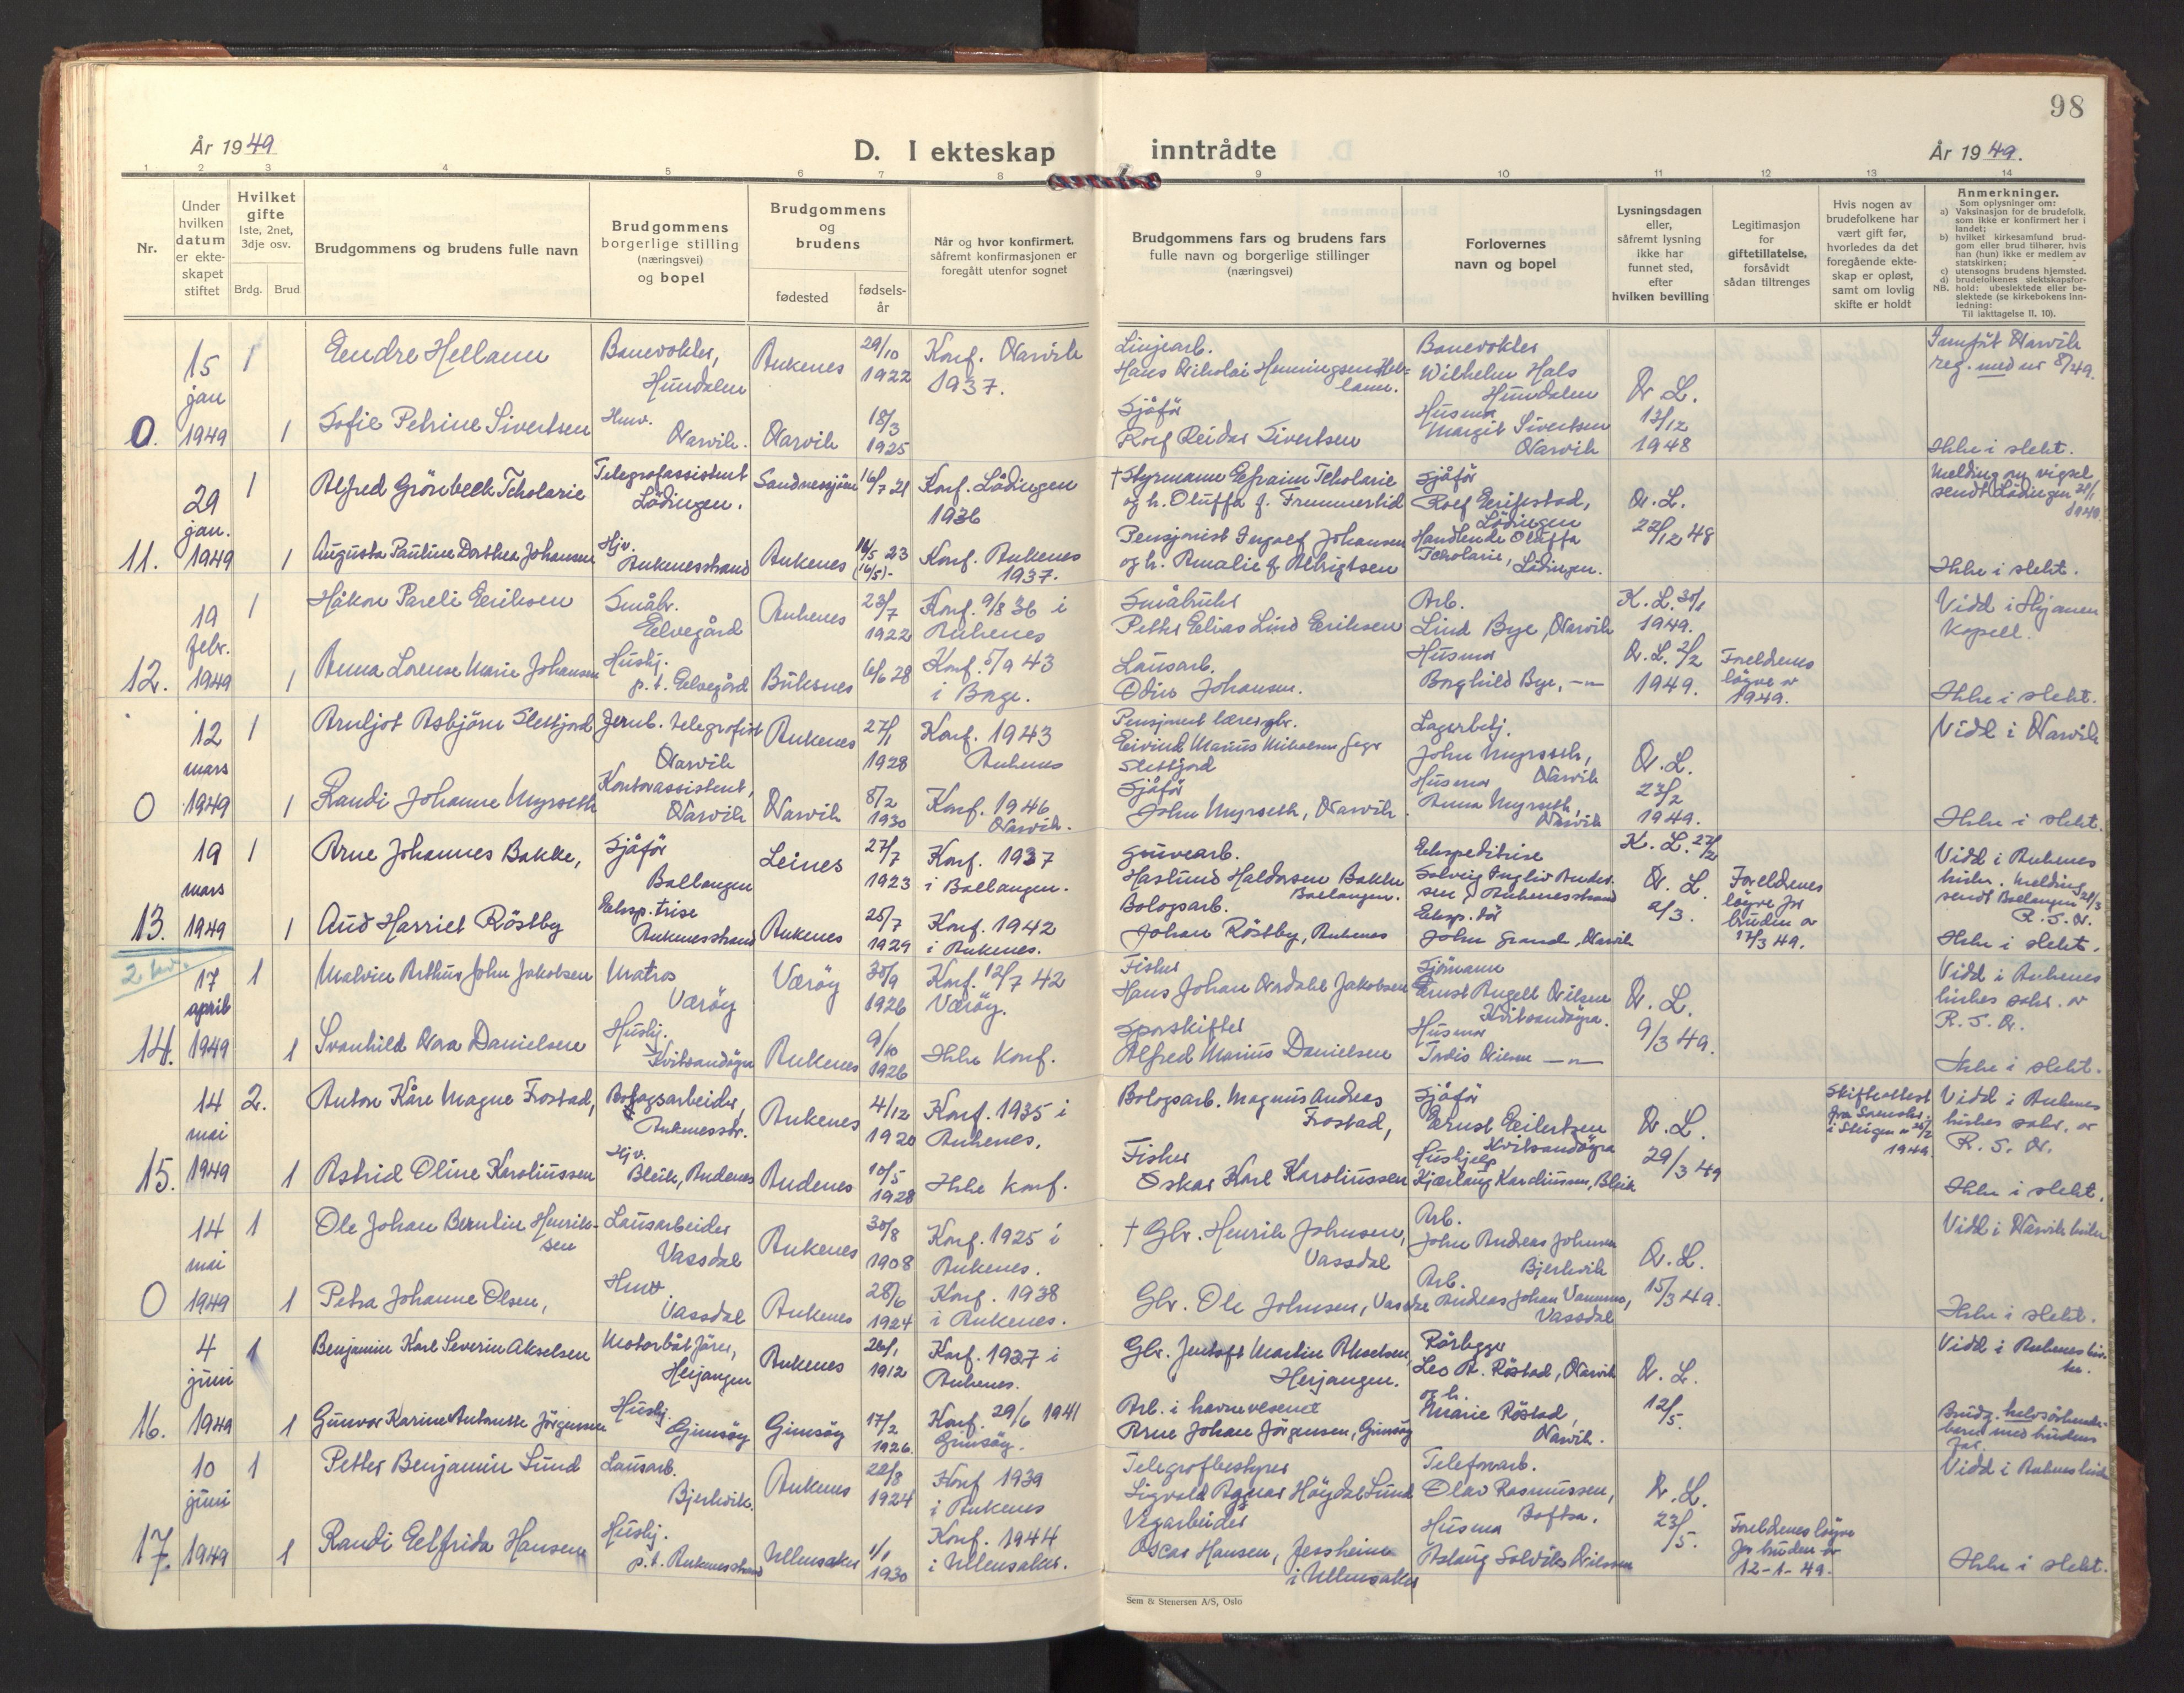 98
År 1949
D. I ekteskap inntrådte
År 1949.
1 2 3 4 5 6 7 8 9 10 11 12 13 14
Nr.
Under hvilken datum er ekteskapet stiftet
Hvilket gifte 1ste, 2net, 3dje osv.
Brdg. Brud
Brudgommens og brudens fulle navn
Brudgommens borgerlige stilling (næringsvei) og bopel
Brudgommens og brudens
fødested
fødsels-år
Når og hvor konfirmert, såfremt konfirmasjonen er foregått utenfor sognet
Brudgommens fars og brudens fars fulle navn og borgerlige stillinger (næringsvei)
Forlovernes navn og bopel
Lysningsdagen eller, såfremt lysning ikke har funnet sted, efter hvilken bevilling
Legitimasjon for giftetillatelse, forsåvidt sådan tiltrenges
Hvis nogen av brudefolkene har vært gift før, hvorledes da det foregående ekteskap er opløst, samt om lovlig skifte er holdt
Anmerkninger.
Som oplysninger om:
a) Vaksinasjon for de brudefolk, som ikke er konfirmert her i landet;
b) hvilket kirkesamfund brudgom eller brud tilhører, hvis han (hun) ikke er medlem av statskirken;
c) utensogns brudens hjemsted.
d) brudefolkenes slektskapsforhold: ubeslektede eller beslektede (se kirkebokens innledning:
NB.
Til iakttagelse II, 10).
15 jan 1949 1 Eendre Hellann Banevokter, Hundalen Ankenes 29/10 1922 Konf. Narvik 1937. Linjearb. Hans Nikolai Henningsen Hellann. Banevokter Wilhelm Hals Hundalen N. L. 13/12 1948 Innført Narvik reg. med nr 8/49.
0. 1 Sofie Petrine Sivertsen Hmv. Narvik. Narvik 18/3 1925 Sjåfør Rolf Reidar Sivertsen Husmor Margit Sivertsen Narvik Ikke i slekt.
29 jan. 1949 1 Alfred Grönbech Tcholarie Telegrafassistent Lödingen. Sandnessjöen 16/7 21 Konf. Lödingen 1936 † Styrmann Efraim Tcholarie og h. Oluffa f. Sjåfør Rolf Lödingen N. L. 22/12 48 Melding om vigsel sendt Lödingen
11. 1 Augusta Pauline Dorthea Johansen Hjv. Ankenesstrand Ankenes 16/5 23 (16/5)- Konf. Ankenes 1937. Pensjonist Ingolf Johansen og h. Amalie f. Albrigtsen Handlende Oluffa Tcholarie, Lödingen. Ikke i slekt.
19 febr. 1949 1 Håkon Pareli Eriksen Småbr. Elvegård Ankenes 23/7 1922 Konf. 9/8 36 i Ankenes Småbruker Petter Elias Lind Eriksen Arb. Lind Bye, Narvik K. L. 30/1 1949. Vidd i Skjomen Kapell.
12. 1 Anna Lorense Marie Johansen Hushj. p.t. Elvegård Buksnes 6/6 28 Konf. 5/9 43 i Borge. Lausarb. Odin Johansen. Husmor Borghild Bye, -"- N. L. 2/2 1949. Foreldrenes løyve av 1949. Ikke i slekt.
12 mars 1949 1 Arnljot Asbjörn Slettjord Jernb. telegrafist Narvik Ankenes 27/1 1928 Konf. 1943 Ankenes Pensjonert lærer, gbr. Eivind Marius Slettjord Lagerbetj. John Myrseth, Narvik N. L. 23/2 1949. Vidd i Narvik
0 1 Randi Johanne Myrseth Kontorassistent, Narvik Narvik 8/2 1930 Konf. 1946 Narvik. Sjåför John Myrseth, Narvik. Husmor Anna Myrseth, Narvik Ikke i slekt.
19 mars 1949 1 Arne Johannes Bakke, Sjåför Ballangen Leines 27/7 1923 Konf. 1937 i Ballangen. Gruvearb. Haslund Haldorsen Bakke Ballangen. Ekspeditrise Solveig Andersen, Ankenesstrand K. L. 27/2 N. L. 2/3. Foreldrenes løyve for bruden av 17/3 49. Vidd i Ankenes kirke. Melding sendt Ballangen 21/3 R. S. N.
13. 1 Aud Harriet Röstby Eksp.trise Ankenesstrand Ankenes 25/7 1929 Konf. 1942 i Ankenes. Bologsarb. Johan Röstby, Ankenes Eksp.tör John Grand, Narvik Ikke i slekt.
17 april 1949 1 Malvin Arthur John Jakobsen Matros Værøy Værøy 30/9 1926 Konf. 12/7 42 Værøy. Fisker Hans Johan Nordahl Jakobsen Sjömann Ernst Angell Nilsen Kvitsandøyra. N. L. 9/3 49. Vidd i Ankenes kirkes sakr. av R. S. N.
14. 1 Svanhild Nora Danielsen Hushj. Kvitsandøyra Ankenes 9/10 1926 Ikke Konf. Sporskifter Alfred Marius Danielsen Husmor Tordis Nilsen -"- Ikke i slekt.
14 mai 1949 2. Anton Kåre Magne Frostad, Bologsarbeider, Ankenesstr. Ankenes 4/12 1920 Konf. 1935 i Ankenes. Bologsarb. Magnus Andreas Frostad, Sjåför Ernst Eilertsen Kvitsandøyra N. L. 29/3 49 Skifteattest fra Sorenskr. i Steigen av 1949. Vidd i Ankenes kirkes sakr. av R. S. N.
15. 1 Astrid Oline Karoliussen Hjv. Bleik, Andenes Andenes 10/5 1928 Ikke konf. Fisker Oskar Karl Karoliussen Hushjelp Kjærlaug Karoliussen, Bleik Ikke i slekt.
14 mai 1949 1 Ole Johan Berntin Henriksen Lausarbeider Vassdal Ankenes 30/8 1908 Konf. 1925 i Ankenes. † Gbr. Henrik Johnsen, Vassdal Arb. John Andreas Johnsen Bjerkvik N. L. 15/3 49. Vidd i Narvik kirke
0 1 Petra Johanne Olsen, Hmv. Vassdal Ankenes 28/6 1924 Konf. 1938 i Ankenes. Gbr. Ole Johnsen, Vassdal Arb. Andreas Johan Vassdal Ikke i slekt.
4 juni 1949 1 Benjamin Karl Severin Akselsen Motorbåtförer, Herjangen Ankenes 26/1 1912 Konf. 1927 i Ankenes. Gbr. Jentoft Martin Akselsen, Herjangen. Rørlegger Leo A. Röstad, Narvik og h. N. L. 12/5. Vidd i Ankenes kirke.
16. 1 Gunvor Karine Antonette Jörgensen Hushj. Gimsöy Gimsöy 17/2 1926. Konf. 29/6 1941 Gimsöy. Arb. i havnevesenet Arne Johan Jörgensen, Gimsöy Marie Röstad, Narvik. Brudg. halvsöskenbarn med brudens far.
10 juni 1949 1 Petter Benjamin Lund Lausarb. Bjerkvik. Ankenes 22/8 1924 Konf 1939 i Ankenes Telegrafbestyrer Sigvald Ragnar Høydal Lund Telefonarb. Olav Rasmussen, N. L. 23/5. Foreldrenes løyve for bruden av 12-1-49. Vidd i Ankenes kirke
17. 1 Randi Elfrida Hansen Hushj. p.t. Ankenesstrand Ullensaker 1/1 1930 Konf. 1944 i Ullensaker. Vegarbeider Oscar Hansen, Jessheim i Ullensaker Husmor Aslaug Solvik Nilssen Ikke i slekt.
Sem & Stenersen A/S, Oslo